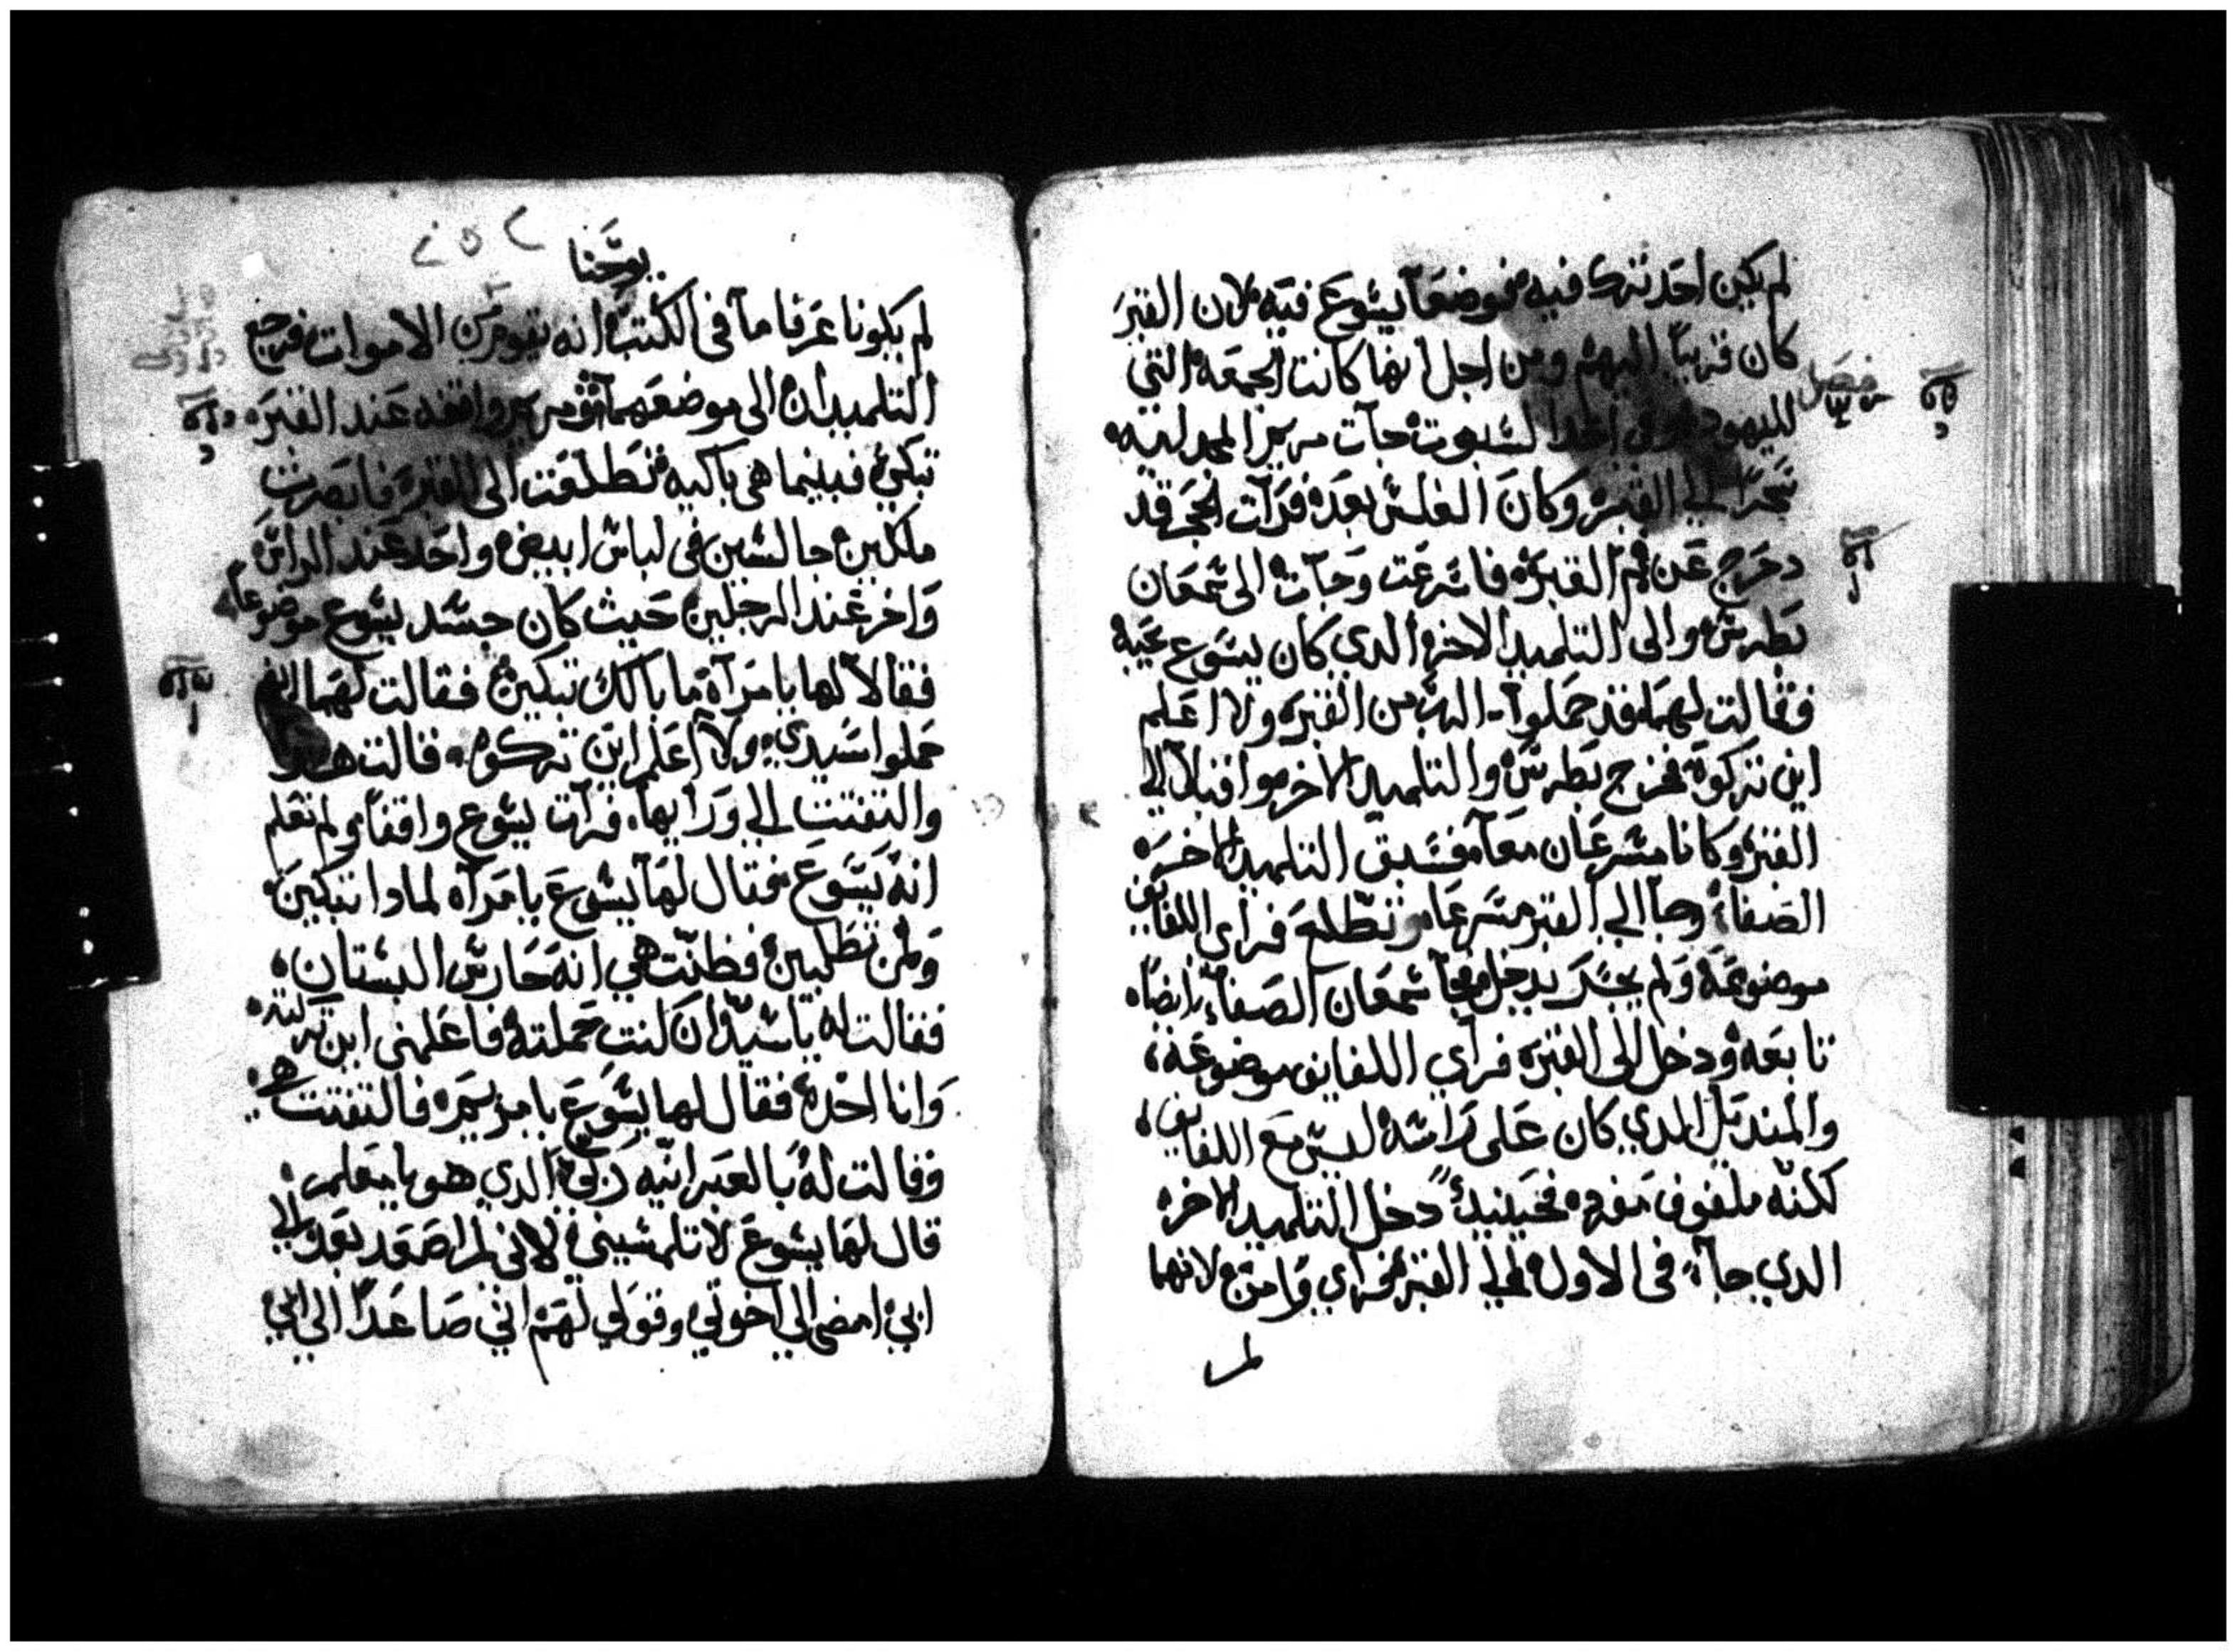 لم يكن احد ترك فيه فوضعا يشوع فيه لان القبر
كان قريبا اليهم ومن اجل انها كانت الجمعه التي
لليهود وفي احدا لسبوت جآت مريم المجدليه
سحرا الي القبر وكان الغلس بعده فرات الحجر قد
دحرج عن فم القبره فاسرعت وجآت الى شمعان
بطرس والى التلميد الاخر الدي كان يسوع يحبه
فقالت لهما قد حملوا الرب من القبره ولا اعلم
اين تركوه فخرج بطرس والتلميد الاخر واقبلا الي
القبر وكانا مسرعان معا فسبق التلميد الاخر
الصفا وجا الي القبر مسرعا وتطلع فراي اللفايف
موضوعه ولم يدخل فجآ شمعان الصفا ايضا
تابعه ودخل الى القبره فراي اللفايف موضوعه
والمنديل الدي كان على راسه ليس مع اللفايف
لكنه ملفوف مفرد فحينيد دخل التلميد الاخر
الدي جآ في الاول الي القبر فراي وامن لانهما
لم
يوحنا
لم يكونا عرفا مآ في الكتب انه يقوم من الاموات فرجع
التلميدان الى موضعهما ومريم واقفه عند القبره
تبكي فبينما هي باكيه تطلعت الى القبره فابصرت
ملكين جالسين في لباس ابيض واحد عند الراس
واخر عند الرجلين حيث كان جسد يسوع موضوعا
فقالا لها يا مرآة ما بالك تبكين فقالت لهما انهم
حملوا سيدي ولا اعلم اين تركوه قالت هدا
والتفتت الي ورايها فرآت يسوع واقفا ولم تعلم
انه يسوع فقال لها يسوع يا مرآه لمادا تبكين
ولمن تطلبين فظنت هي انه حارس البستان
فقالت له يا سيد ان كنت حملته فاعلمني اين تركته
وانا اخده فقال لها يسوع يا مريم فالتفتت هي
وقالت له بالعبرانيه ربوني الدي هو يا معلم
قال لها يسوع لا تلمسيني لاني لم اصعد بعد الي
ابي امضي الي اخوتي وقولي لهم اني صاعدا الي ابي